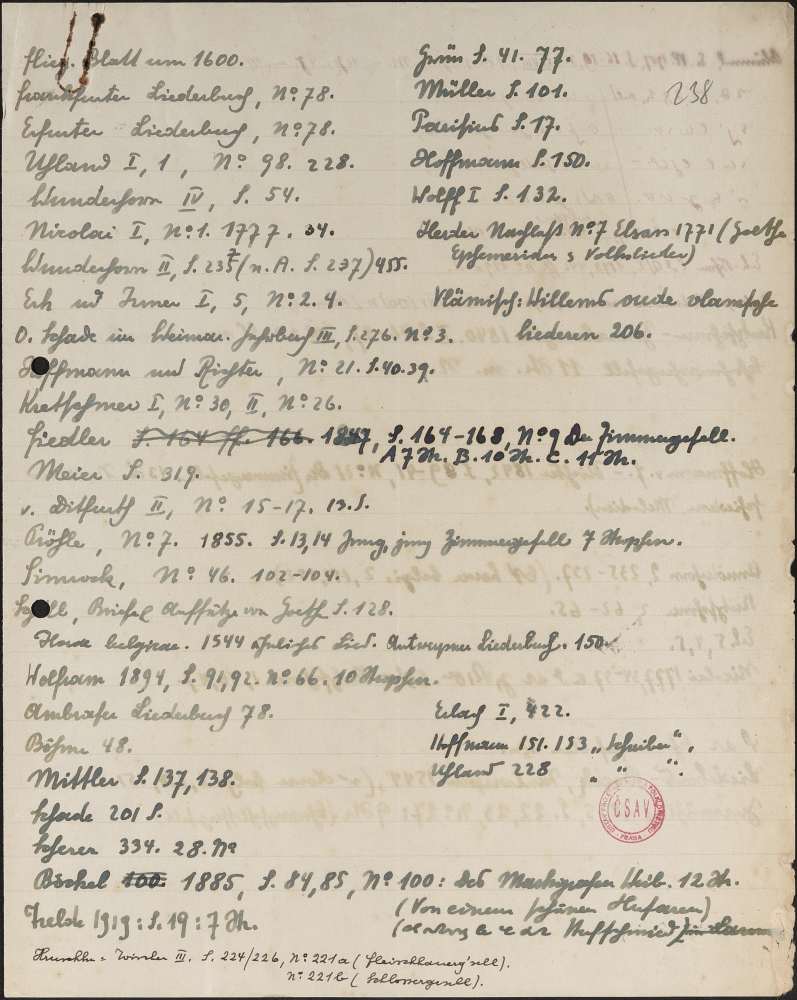 flieg. Blatt um 1600.
Frankfurter Liederbuch, No. 78.
Erfurter Liederbuch, No. 78.
Uhland I, 1, No 98. 228.
Wunderhorn IV, S. 54.
Nicolai I, No. 1. 1777. 34.
Wunderhorn II, S. 235 (n. A. S. 237) 455.
Erk und Irmer I, 5, No. 2. 4.
O. Schade im Weimar. Jahrbuch III, S. 276. No 3.
Hoffmann und Richter, No. 21. S. 40. 39.
Kretschmer I, No. 30, II, No. 26.
Fiedler S. 164 ff. 166. 1847, S. 164-168, No 9 Der Zimmergesell.
A 7 Str. B. 10 Str. C. 11 Str.
Meier S. 319.
v. Ditfurth II, No 15-17. 13. S.
Pröhle, No. 7. 1855. S. 13, 14 Jung, jung Zimmergesell 7 Strophen.
Simrock, No 46. 102-104.
Schöll, Briefe Aufsätze von Goethe S. 128.
Horae belgicae. 1544 ähnliches Lied. Antwerpner Liederbuch. 150
Wolfram 1894, S. 91, 92. No. 66. 10 Strophen.
Ambraser Liederbuch 78.
Böhme 48.
Mittler S. 137, 138.
Schade 201 S.
Scherer 334. 28. No
Böckel 100. 1885, S. 84, 85, No 100: Des Markgrafen Weib. 12 Str.
(Von einem schönen Husaren)
Krelde 1919: S. 19: 7 Str.
Hufschmied
Hruschka - Toischer III. S. 224/226, No. 221a (Fleischhauerg'sell).
No. 221b (Schlossergesell).
Grün S. 41. 77.
Müller S. 101.
238
Parisius S. 17.
Hoffmann S. 150.
Wolff I S. 132.
Herder Nachlaß No 7 Elsass 1771 (Goethe
Ephemerides s Volkslieder)
Vlämisch: Willems oude vlamische
liederen 206.
Erlach I, 422.
Hoffmann 151. 153 „Schreiber",
Uhland 228 „ „ ".
ČSAV
PRAHA